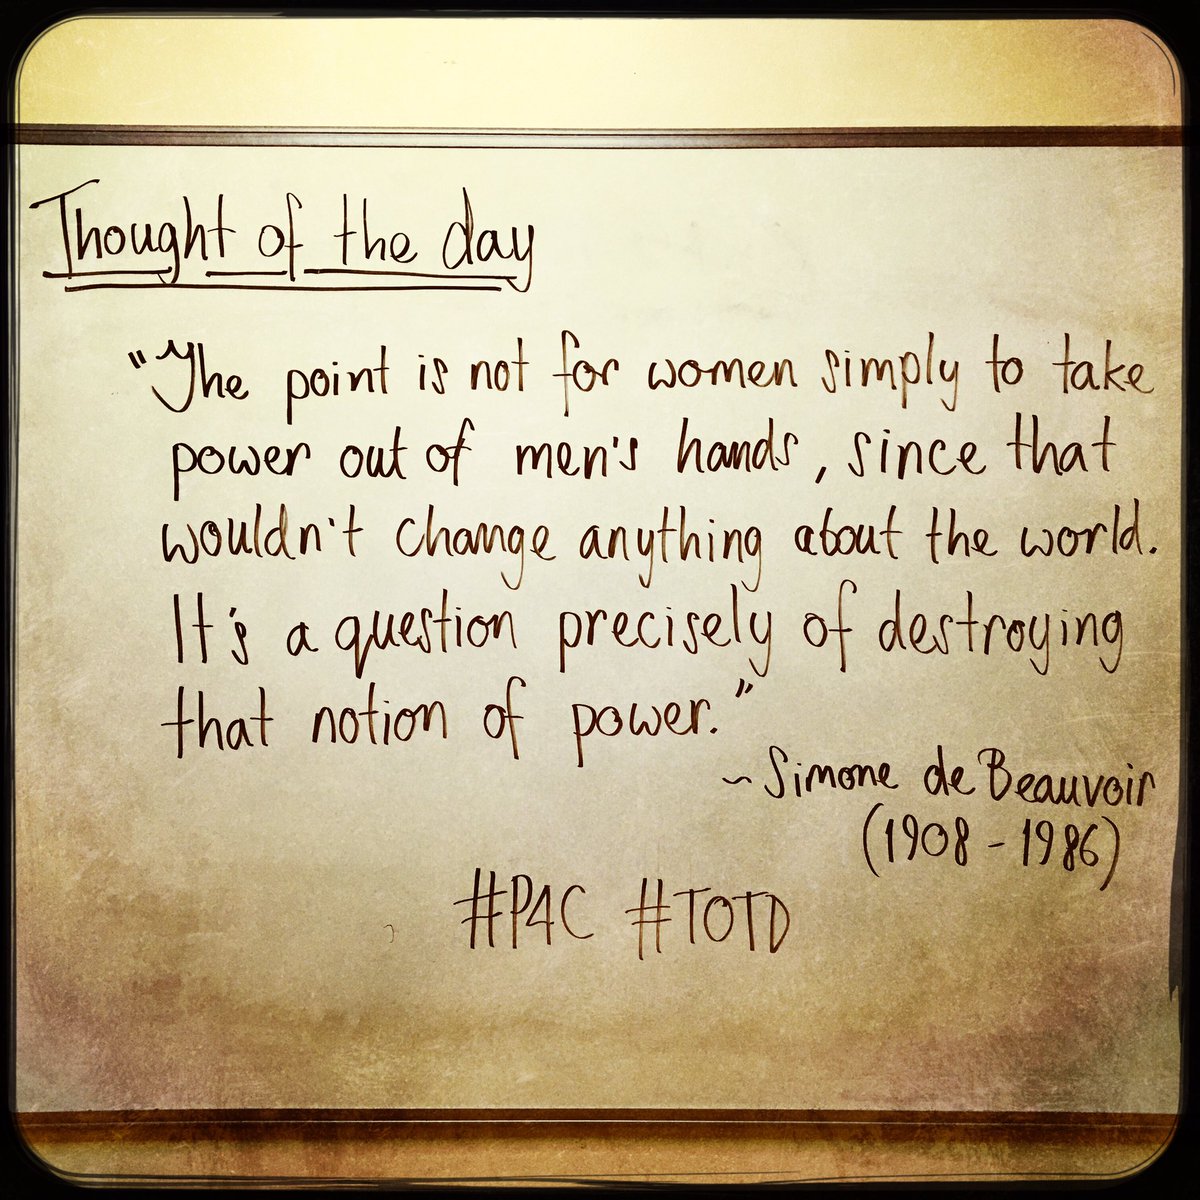 Thought of the day
"The point is not for women simply to take
power out of men's hands, since that
wouldn't change anything about the world.
It's a question precisely of destroying
that notion of power."
~ Simone de Beauvoir
(1908 - 1986)
#P4C #TOTD